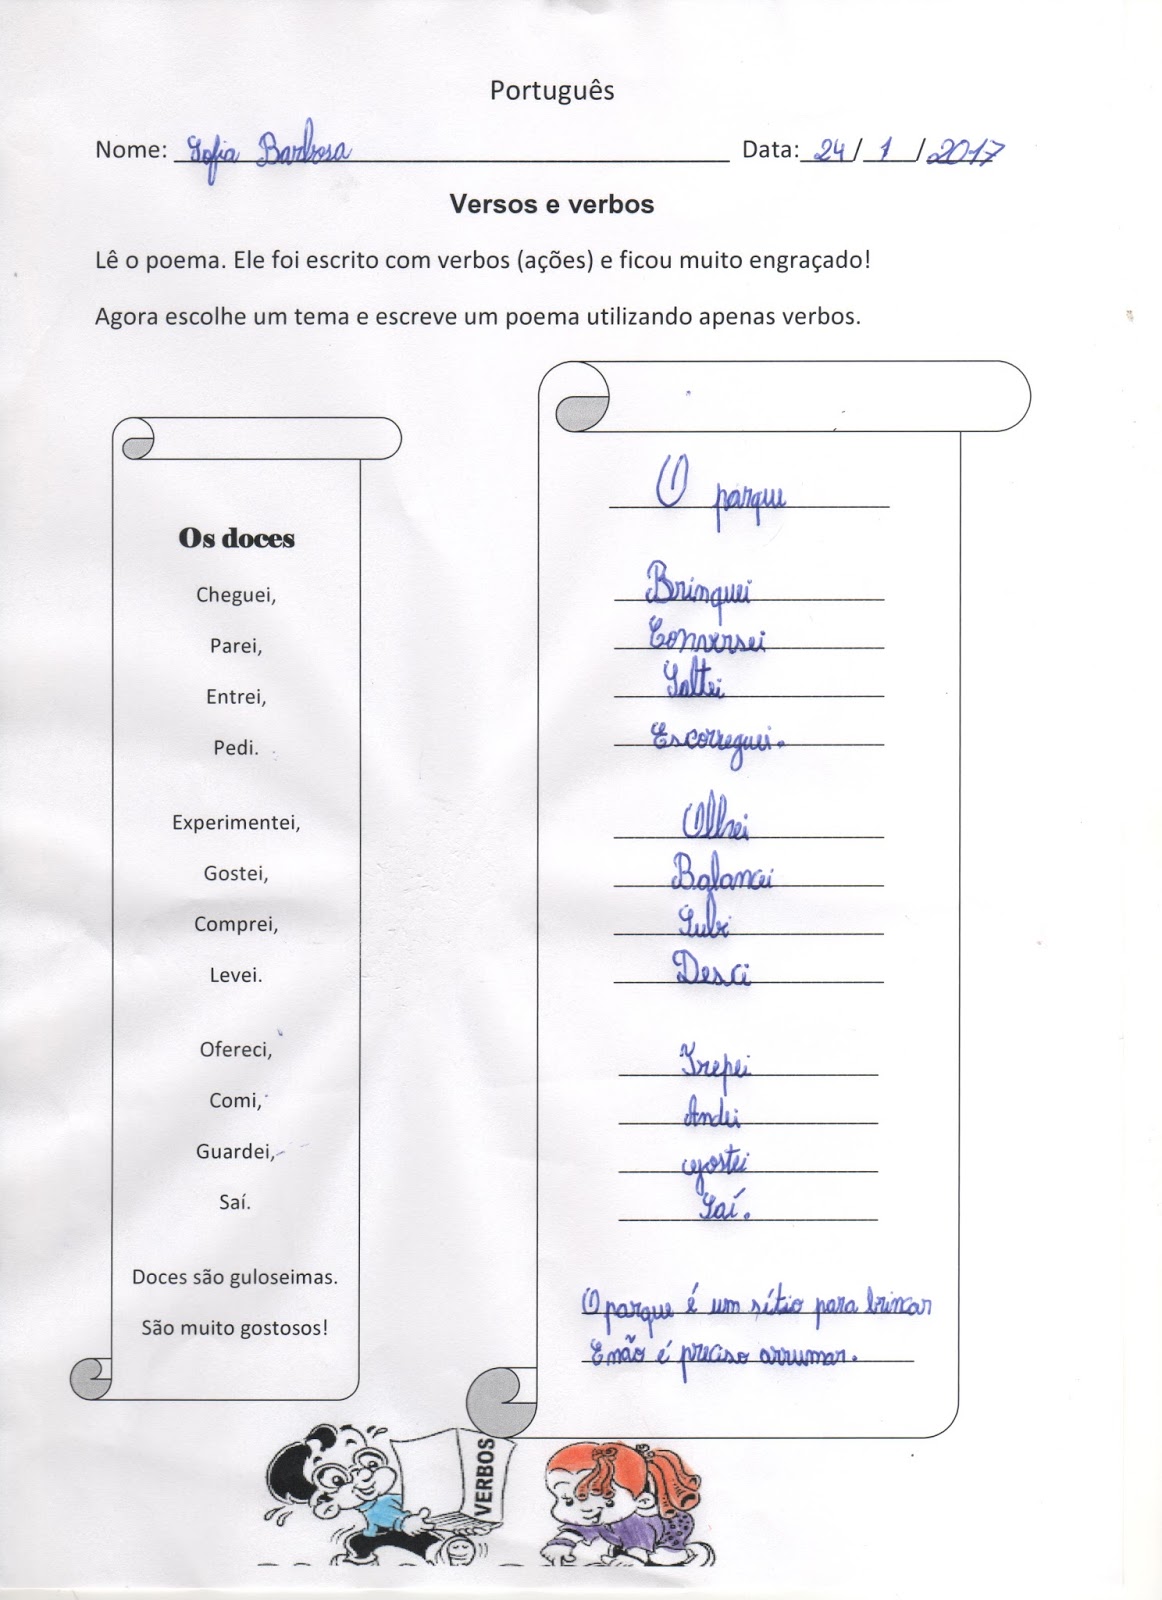 Português
Nome: Sofia Barbosa Data: 24/ 1 /2017
Versos e verbos
Lê o poema. Ele foi escrito com verbos (ações) e ficou muito engraçado!
Agora escolhe um tema e escreve um poema utilizando apenas verbos.
Os doces
Cheguei,
Parei,
Entrei,
Pedi.
Experimentei,
Gostei,
Comprei,
Levei.
Ofereci,
Comi,
Guardei,
Saí.
Doces são guloseimas.
São muito gostosos!
O parque
Brinquei
Conversei
Saltei
Escorreguei.
Olhei
Balancei
Subi
Desci
Trepei
Andei
gostei
Saí.
O parque é um sítio para brincar
E não é preciso arrumar.
VERBOS